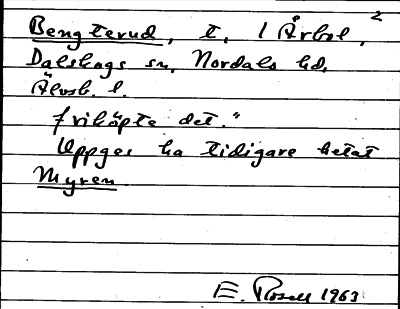 2
Bengterud, t. 1 Årbol,
Dalskogs sn, Nordals hd,
Älvsb. l.
friköpte det."
Uppges ha tidigare hetat
Myren
E. Rosell 1963